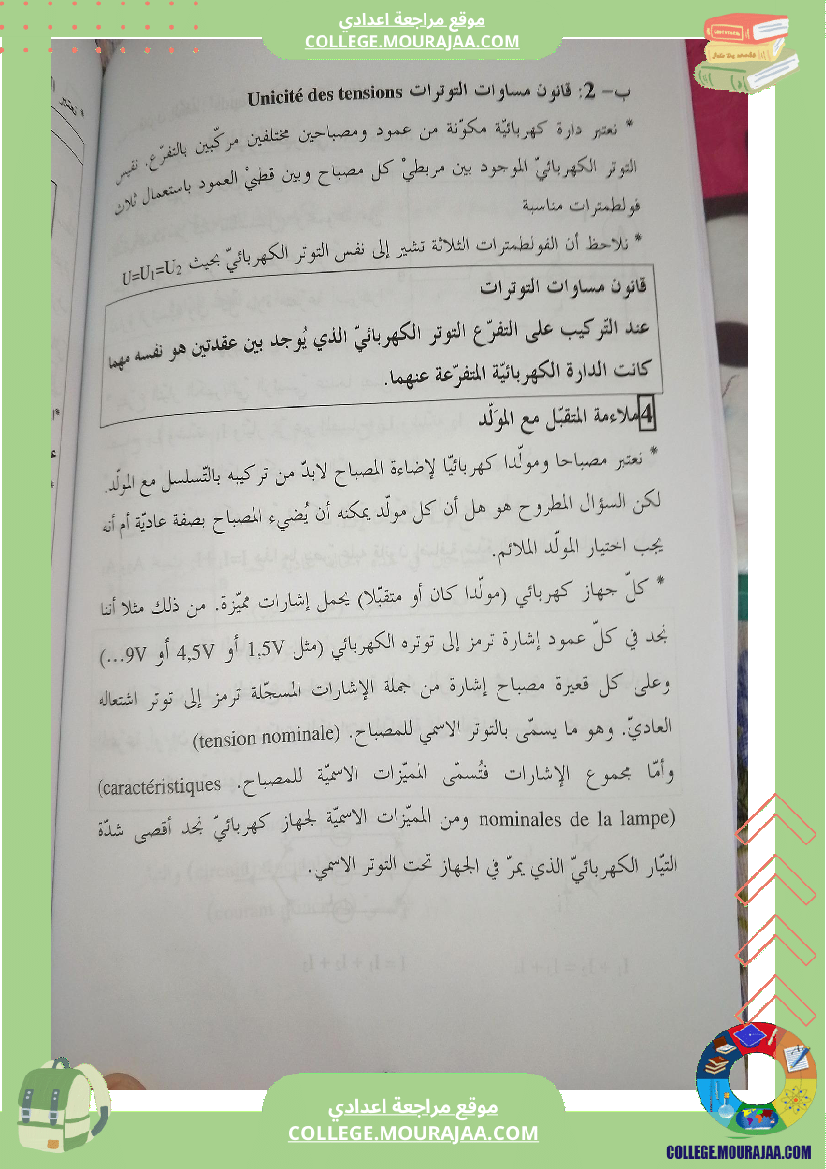 موقع مراجعة اعدادي
COLLEGE.MOURAJAA.COM
ب- 2: قانون مساوات التوترات Unicité des tensions
* نعتبر دارة كهربائيّة مكوّنة من عمود ومصباحين مختلفين مركّبين بالتفرّع. نقيس
التوتر الكهربائيّ الموجود بين مربطيْ كل مصباح وبين قطبيْ العمود باستعمال ثلاث
فولطمترات مناسبة
* نلاحظ أن الفولطمترات الثلاثة تشير إلى نفس التوتر الكهربائيّ بحيث U=U₁=U₂
قانون مساوات التوترات
عند التّركيب على التفرّع التوتر الكهربائيّ الذي يُوجد بين عقدتين هو نفسه مهما
كانت الدارة الكهربائيّة المتفرّعة عنهما.
4 ملاءمة المتقبّل مع الموَلّد
* نعتبر مصباحا ومولّدا كهربائيّا لإضاءة المصباح لابدّ من تركيبه بالتّسلسل مع المولّد.
لكن السؤال المطروح هو هل أن كل مولّد يمكنه أن يُضيء المصباح بصفة عاديّة أم أنه
يجب اختيار المولّد الملائم.
* كلّ جهاز كهربائي (مولّدا كان أو متقبّلا) يحمل إشارات مميّزة. من ذلك مثلا أننا
نجد في كلّ عمود إشارة ترمز إلى توتره الكهربائي (مثل 1,5V أو 4,5V أو 9V...)
وعلى كل قعيرة مصباح إشارة من جملة الإشارات المسجّلة ترمز إلى توتر اشتعاله
العاديّ. وهو ما يسمّى بالتوتر الاسمي للمصباح. (tension nominale)
وأمّا مجموع الإشارات فتُسمّى المميّزات الاسميّة للمصباح. (caractéristiques
nominales de la lampe) ومن المميّزات الاسميّة لجهاز كهربائيّ نجد أقصى شدّة
التيّار الكهربائيّ الذي يمرّ في الجهاز تحت التوتر الاسمي.
موقع مراجعة اعدادي
COLLEGE.MOURAJAA.COM
COLLEGE.MOURAJAA.COM